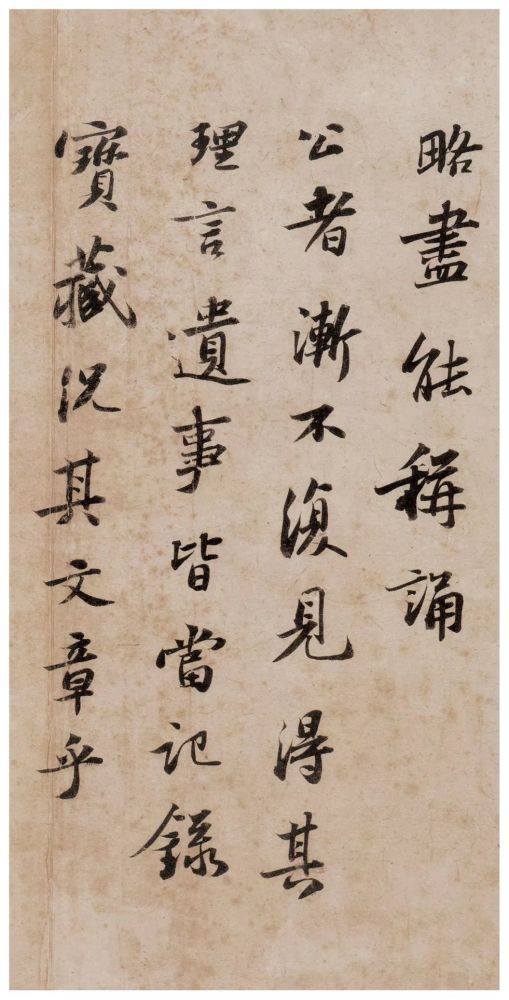 略盡能稱誦
公者漸不須見得其
理言遺事皆當記錄
寶藏況其文章乎